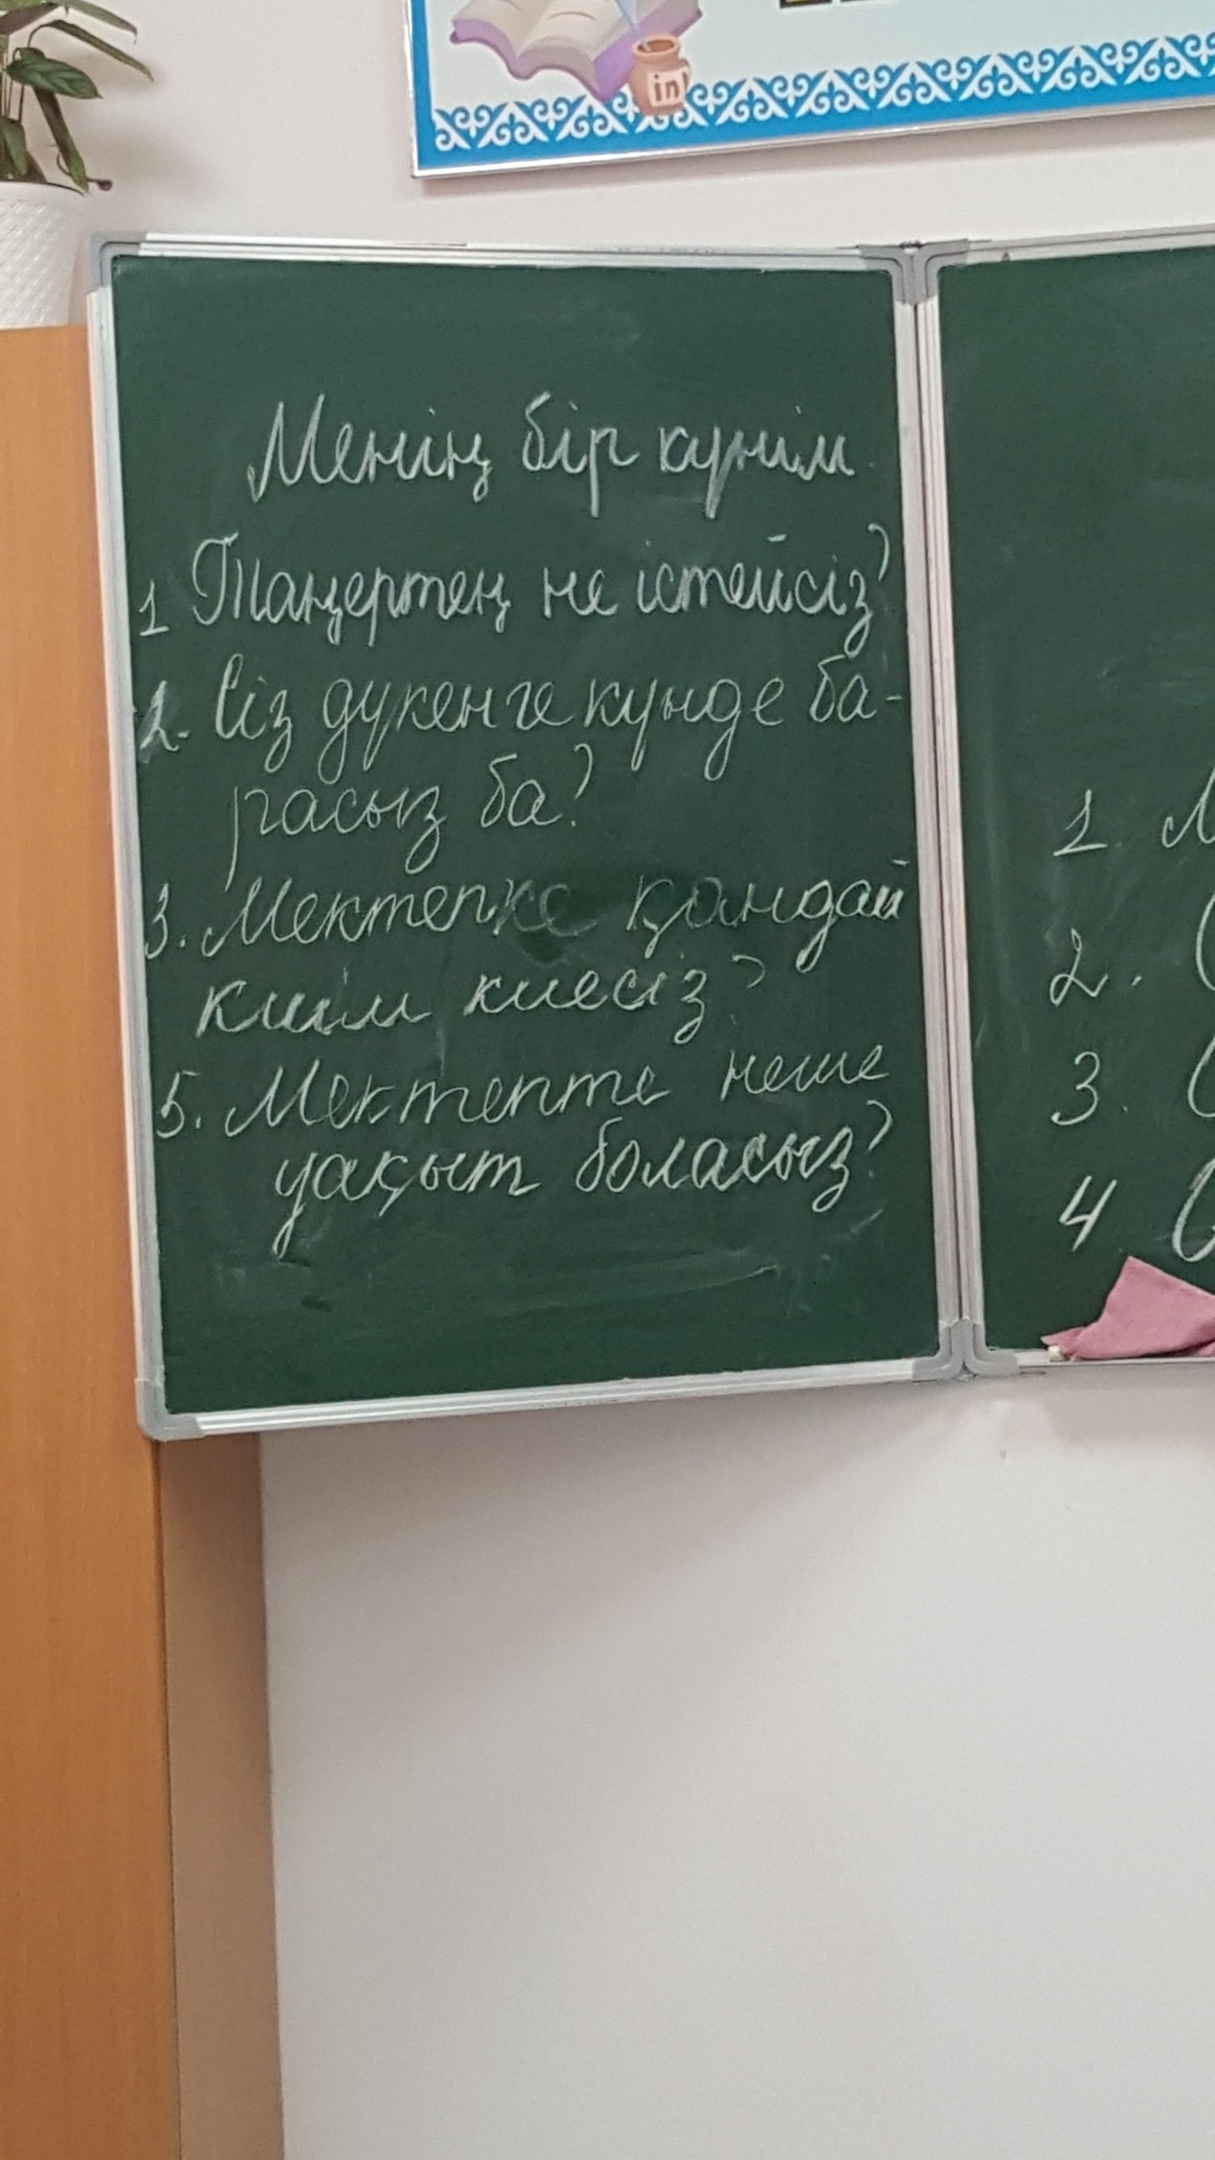 in
Менің бір күнім.
1 Таңертең не істейсіз?
2. Сіз дүкенге күнде ба-
расыз ба?
3. Мектепке қандай
киім киесіз?
5. Мектепте неше
уақыт боласыз?
1.
2.
3.
4